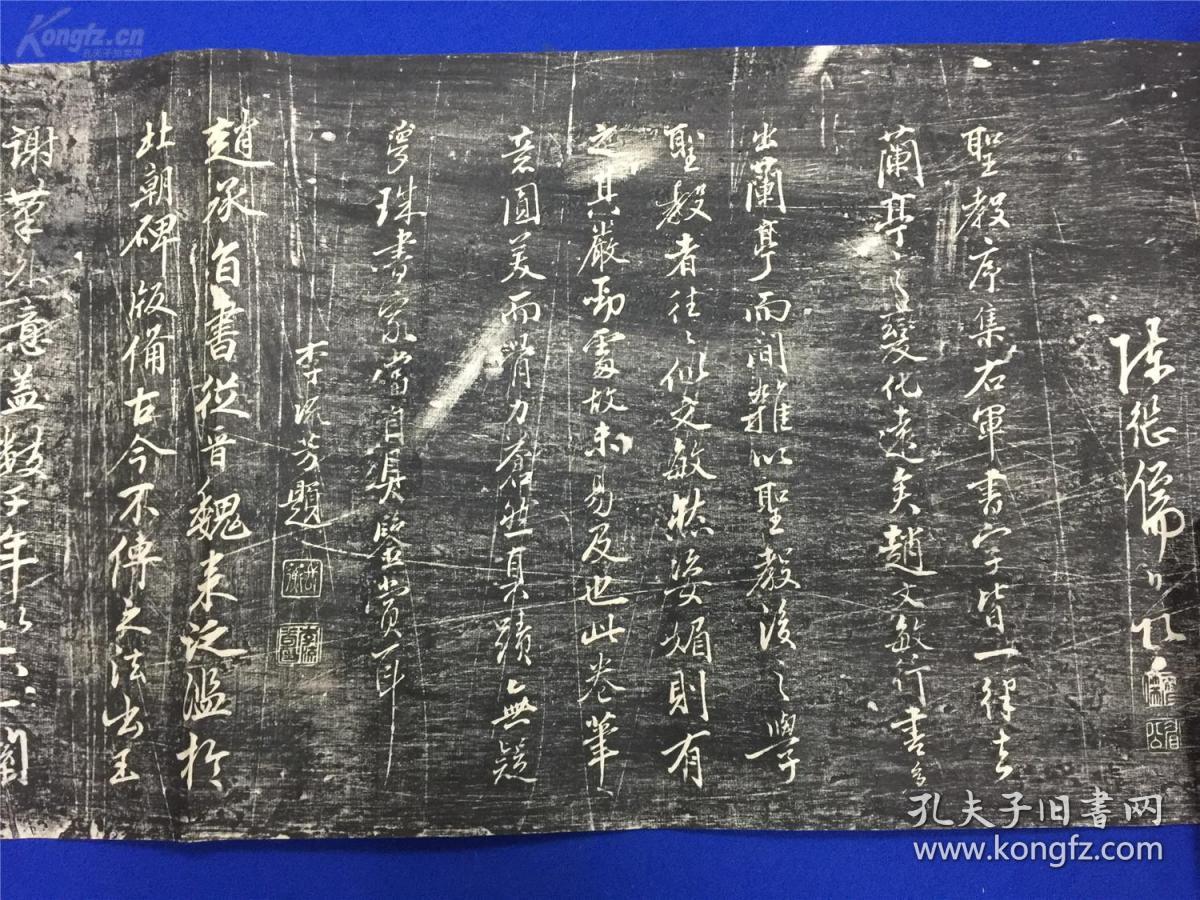 陳
聖教序集右軍書字皆一律去
蘭亭之變化遠矣趙文敏行書多
出蘭亭而間雜以聖教後之學
聖教者往々似文敏然姿媚則有
之其嚴勁處故未易及也此卷筆
意圓美而骨力蒼然真蹟無疑
夢珠書家當自具鑒賞耳
李流芳題
趙承旨書從晉魏來泛濫於
北朝碑版備古今不傳之法出王
謝筆外意蓋數千年
Kongfz.cn
孔夫子旧书网
孔夫子旧书网
www.kongfz.com